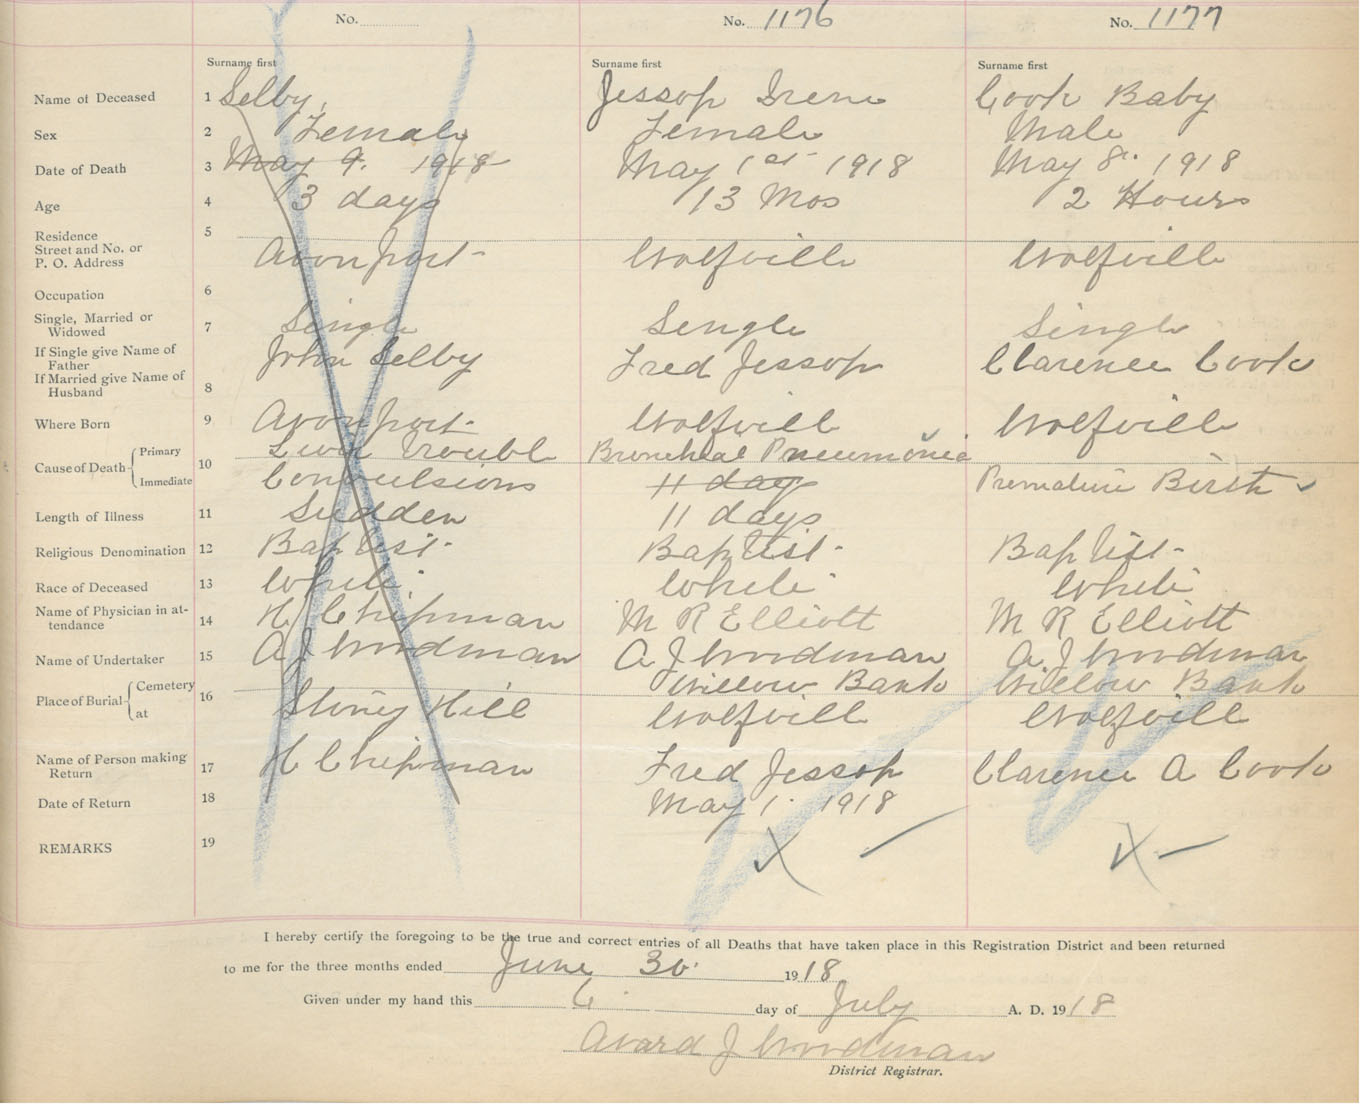 No. No. 1176 No. 1177
Surname first Surname first Surname first
Name of Deceased 1 Selby, Jessop Irene Cook Baby
Sex 2 Female Female Male
Date of Death 3 May 9. 1918 May 1st 1918 May 8. 1918
Age 4 3 days 13 Mos 2 Hours
Residence 5
Street and No. or
P. O. Address Avonport Wolfville Wolfville
Occupation 6
Single, Married or
Widowed 7 Single Single Single
If Single give Name of
Father John Selby Fred Jessop Clarence Cook
If Married give Name of
Husband 8
Where Born 9 Avonport Wolfville Wolfville
Cause of Death Primary 10 Trouble Bronchial Pneumonia
Immediate Convulsions 11 days Premature Birth
Length of Illness 11 Sudden 11 days
Religious Denomination 12 Baptist Baptist Baptist
Race of Deceased 13 White White White
Name of Physician in at-
tendance 14 H Chipman M R Elliott M R Elliott
Name of Undertaker 15 A J Woodman A J Woodman A J Woodman
Place of Burial Cemetery 16 Willow Bank Willow Bank
at Stoney Hill Wolfvill Wolfvill
Name of Person making
Return 17 H Chipman Fred Jessop Clarence A Cook
Date of Return 18 May 1. 1918
REMARKS 19 X X
I hereby certify the foregoing to be the true and correct entries of all Deaths that have taken place in this Registration District and been returned
to me for the three months ended June 30. 1918
Given under my hand this 6. day of July A. D. 1918
Avard J Woodman
District Registrar.